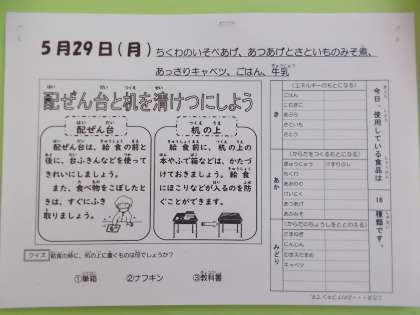 5月29日(月)ちくわのいそべあげ、あつあげとさといものみそ煮、
あっさりキャベツ、ごはん、牛乳
配ぜん台と机を清けつにしよう
配ぜん台
配ぜん台は、給食の前と
後に、台ふきんなどを使って
きれいにしましょう。
また、食べ物をこぼしたと
きは、すぐにふき
取りましょう。
机の上
給食前に、机の上の
本やふで箱などは、かたづ
けておきましょう。給食
にほこりなどが入るのを防
ぐことができます。
クイズ 給食の時に、机の上に置くものは何でしょうか?
①筆箱 ②ナフキン ③教科書
今日、使用している食品は
18
種類です。
き
(エネルギーのもとになる)
ごはん
こむぎこ
あぶら
さといも
さとう
あか
(からだをつくるもとになる)
ぎゅうにゅう
ちくわ
あおのり
けいにく
あつあげ
あかみそ
みどり
(からだのちょうしをととのえる)
たまねぎ
にんじん
キャベツ